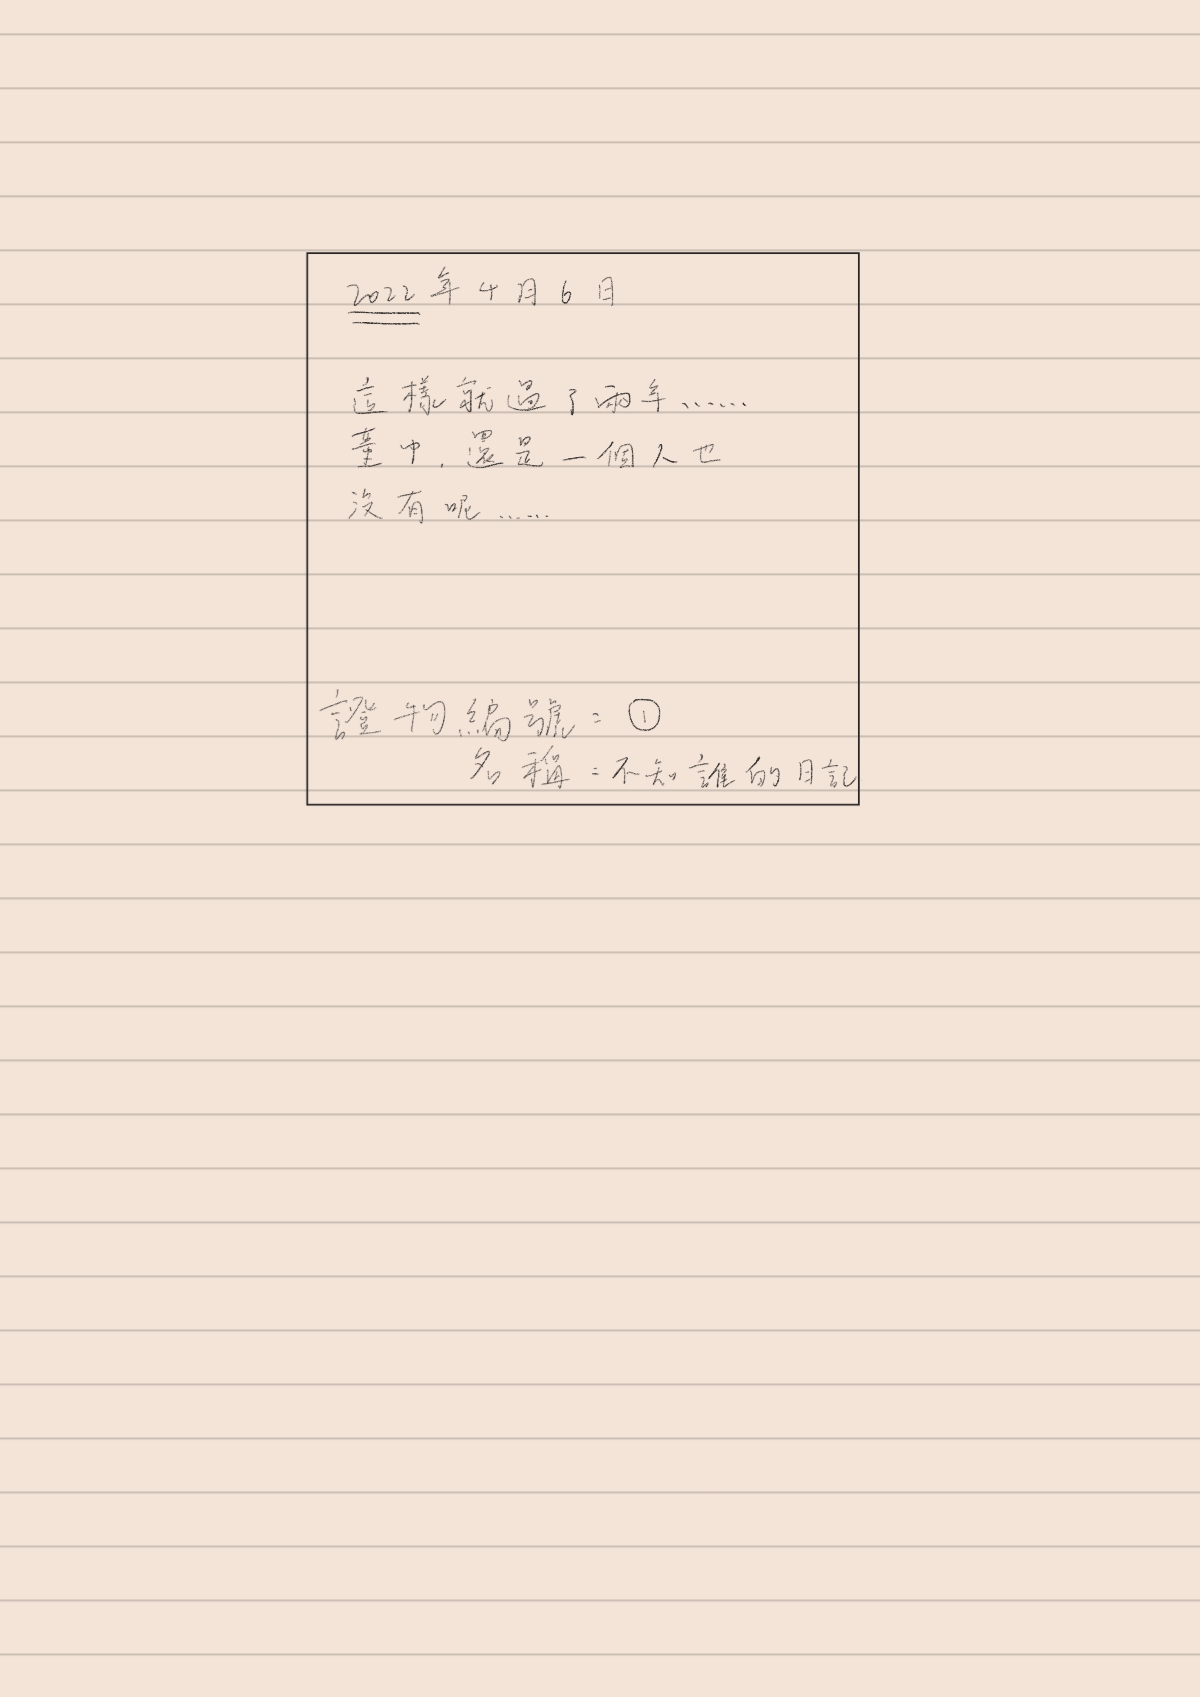 2022年4月6日
這樣就過了兩年……
臺中,還是一個人也
沒有呢……
證物編號:①
名稱:不知誰的日記